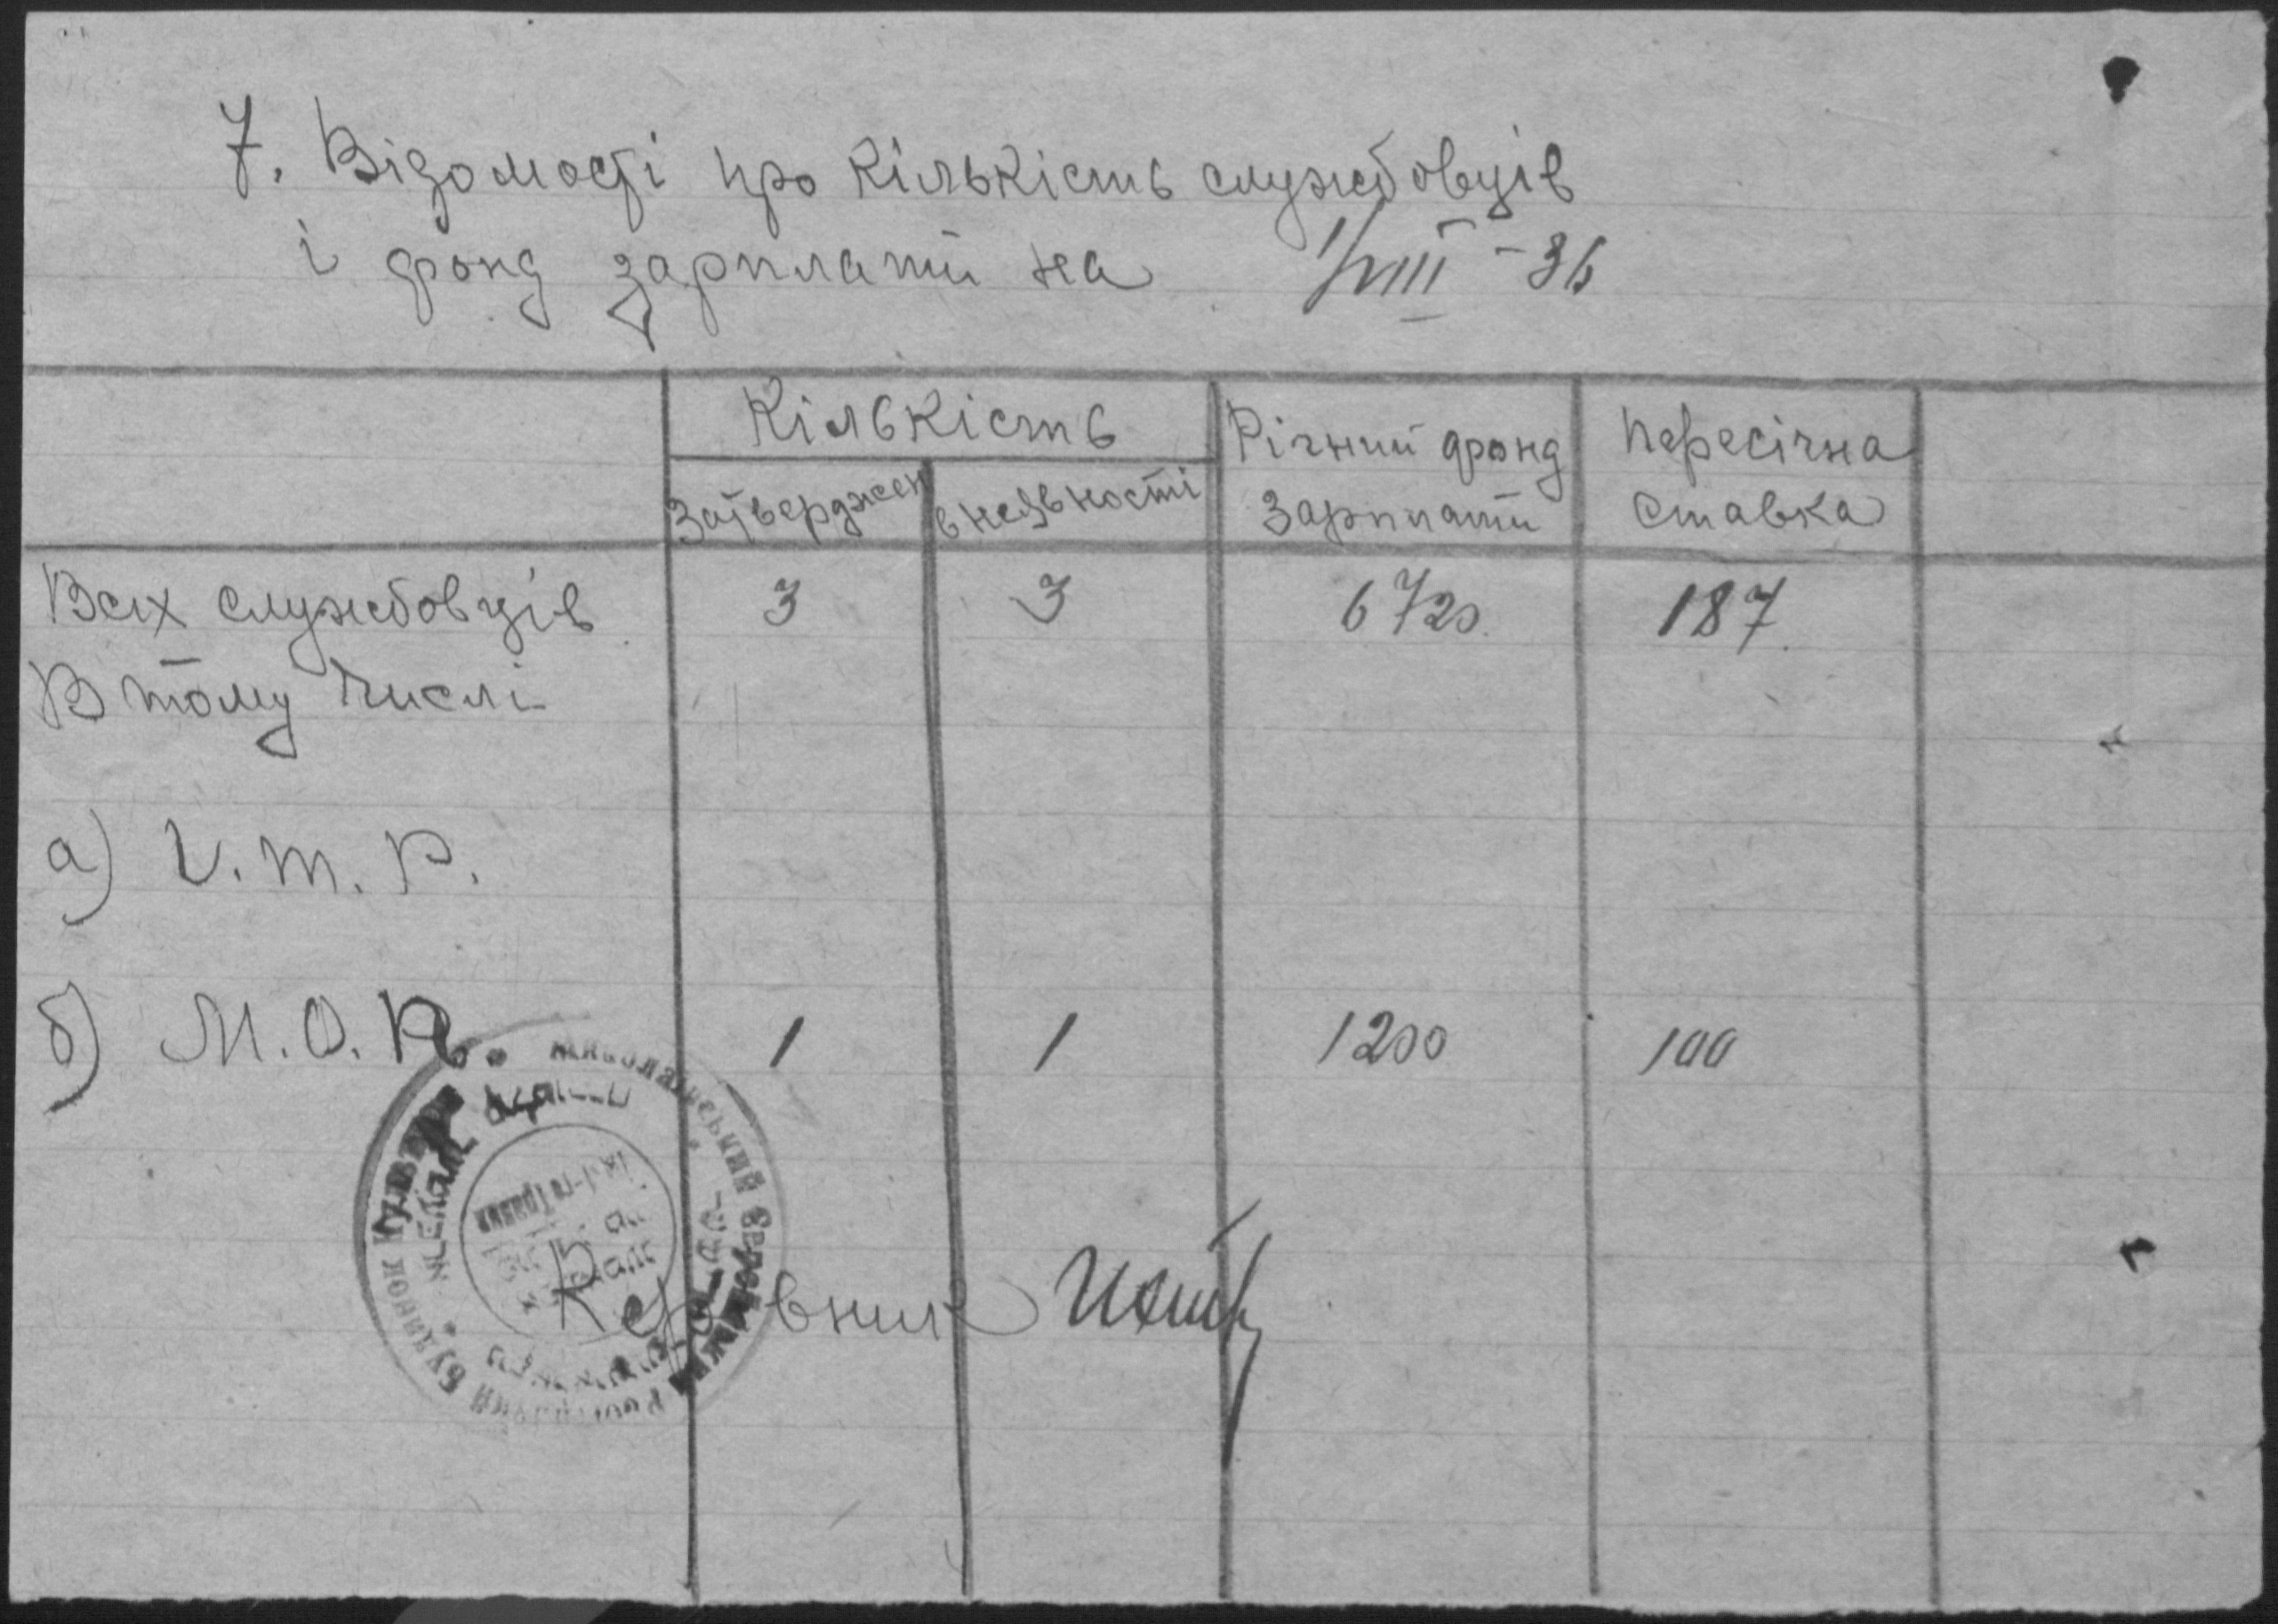 7. Відомості про кількість службовців
і фонд зарплати на 1/VIII - 36
Кількість
Затверджен
в неявності
Річний фонд
зарплати
Пересічна
ставка
Всіх службовців 3 3 6720. 187.
В тому числі
а) І. т. р.
б) М. О. П. 1 1 1200 100
Миколаївський Єврейський
Будинок Культури
Керівник